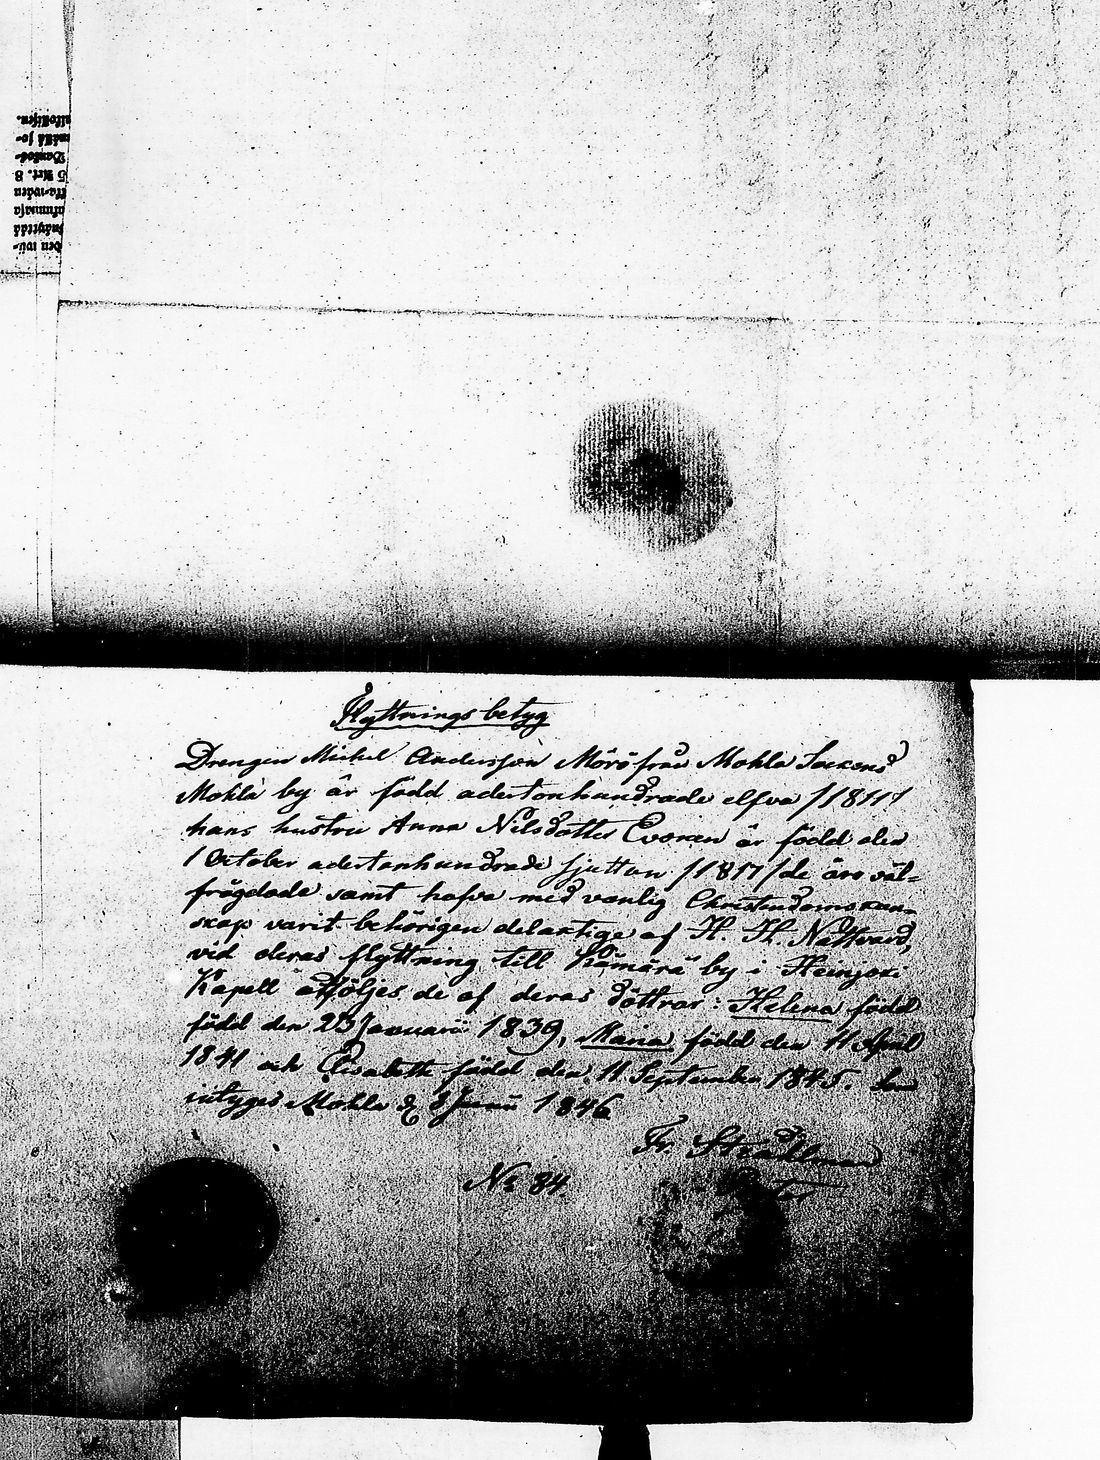 Flyttnings betyg
Drengen Michel Andersson Mörö från Mohla Sockens
Mohla by är född adertonhundrade elfva /1811/
hans hustru Anna Nilsdotter Evoinen är född den
1 October adertonhundrade sjutton /1817/ de äro väl-
frägdade samt hafva med vanlig Christendomskun-
skap varit behörigen delaktige af H. H. Nattvard,
vid deras flyttning till Kämärä by i Heinjoki
Kapell åtföljes de af deras döttrar: Helena född
född den 23 Januarii 1839, Maria född den 11 April
1841 och Elisabeth född den 11 September 1845.
intyges Mohla d 8 Junii 1846
Fr. Strahlman
No 84